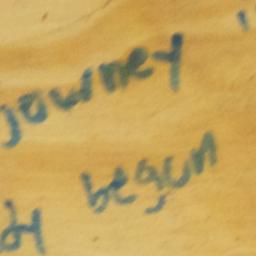 journey
dy begun